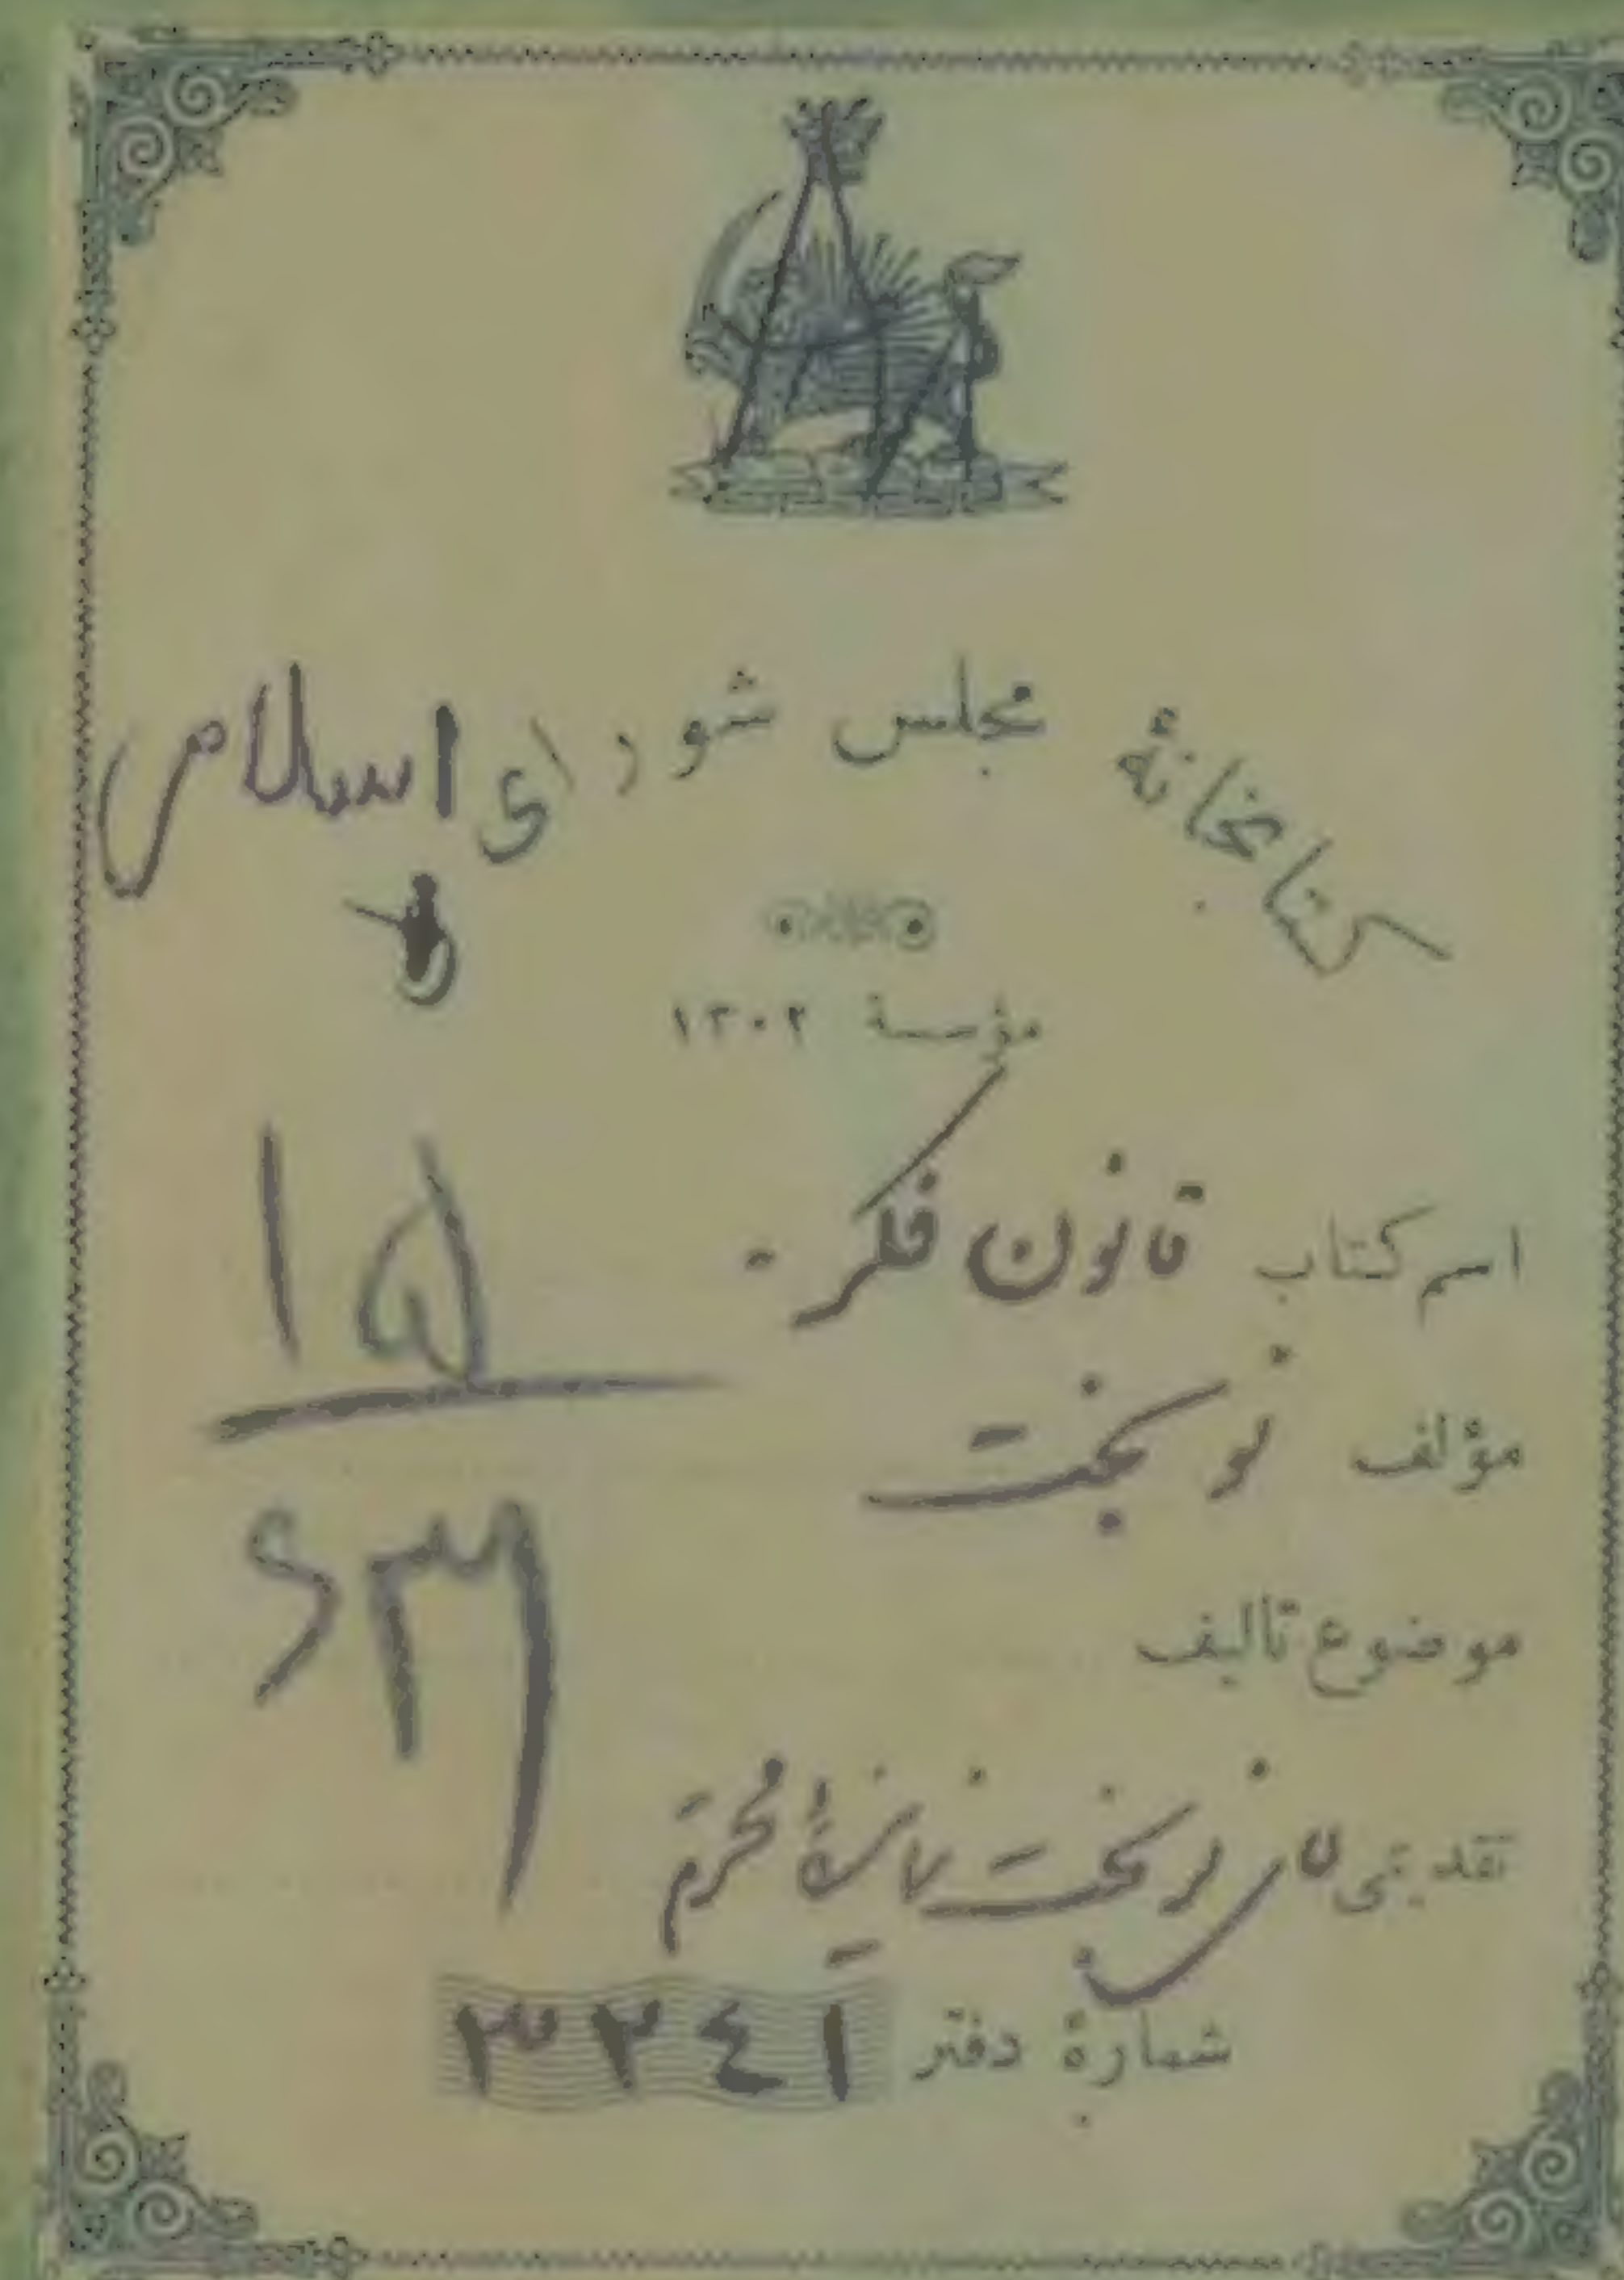 کتابخانهٔ مجلس شورای اسلامی
مؤسسهٔ ۱۳۰۲
اسم کتاب قانون فکر
مؤلف نوبخت
موضوع تالیف
تقدیمی آقای نوبخت نمایندهٔ محترم
شمارهٔ دفتر ۳۲٤۱
۱۵
۶۳